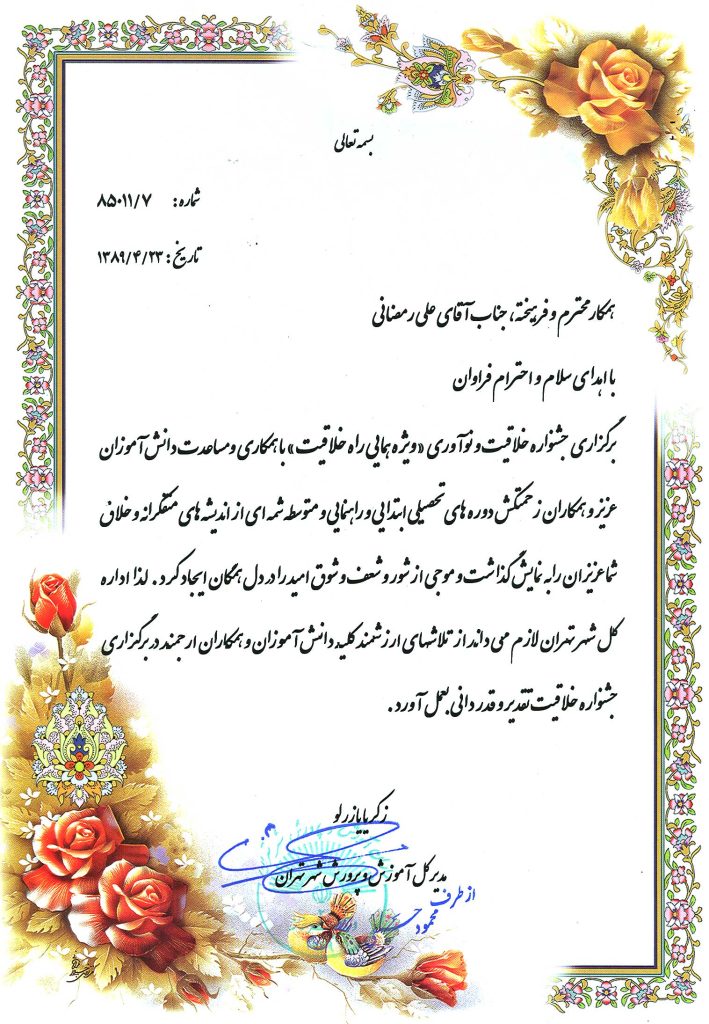 بسمه تعالی
شماره: ۸۵۰۱۱/۷
تاریخ: ۱۳۸۹/۴/۲۳
همکار محترم و فرهیخته، جناب آقای علی رمضانی
با اهدای سلام و احترام فراوان
برگزاری جشنواره خلاقیت و نوآوری «ویژه همایی راه خلاقیت» با همکاری و مساعدت دانش آموزان
عزیز و همکاران زحمتکش دوره های تحصیلی ابتدایی و راهنمایی و متوسطه شمه ای از اندیشه های متفکرانه و خلاق
شما عزیزان را به نمایش گذاشت و موجی از شور و شعف و شوق امید را در دل همگان ایجاد کرد. لذا اداره
کل شهر تهران لازم می داند از تلاشهای ارزشمند کلیه دانش آموزان و همکاران ارجمند در برگزاری
جشنواره خلاقیت تقدیر و قدردانی بعمل آورد.
زکریا یازرلو
مدیر کل آموزش و پرورش شهر تهران
از طرف
محمود